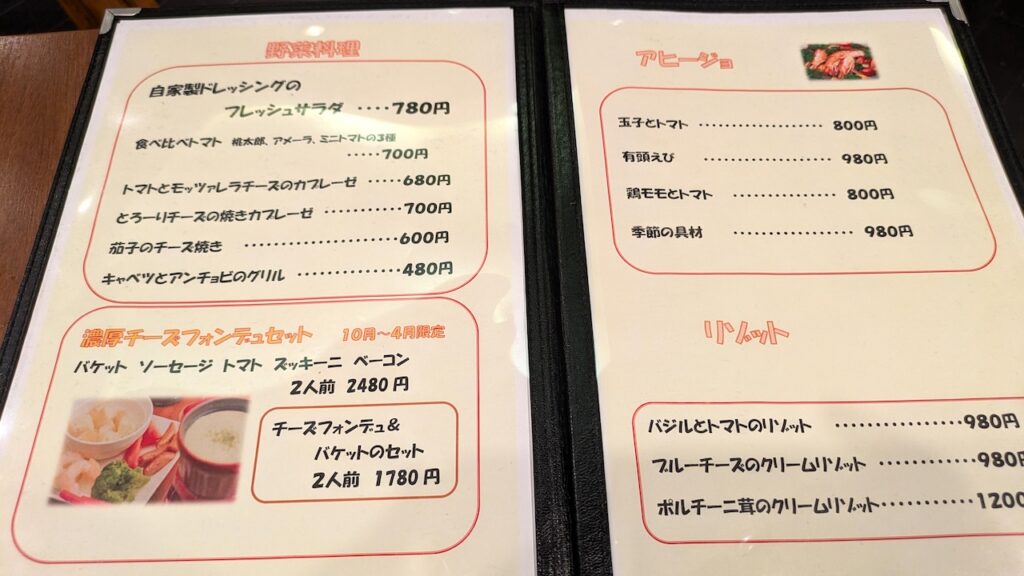 野菜料理
自家製ドレッシングの
フレッシュサラダ ････780円
食べ比べトマト 桃太郎、アメーラ、ミニトマトの3種
･････700円
トマトとモッツァレラチーズのカプレーゼ ･････680円
とろーりチーズの焼きカプレーゼ ･･･････････700円
茄子のチーズ焼き ･････････････････････600円
キャベツとアンチョビのグリル ･･････････････480円
濃厚チーズフォンデュセット 10月～4月限定
バケット ソーセージ トマト ズッキーニ ベーコン
2人前 2480円
チーズフォンデュ&
バケットのセット
2人前 1780円
アヒージョ
玉子とトマト ････････････････････ 800円
有頭えび ････････････････････ 980円
鶏モモとトマト ････････････････ 800円
季節の具材 ･･･････････････････ 980円
リゾット
バジルとトマトのリゾット ･････････････････980円
ブルーチーズのクリームリゾット ････････････980円
ポルチーニ茸のクリームリゾット･･･････････1200